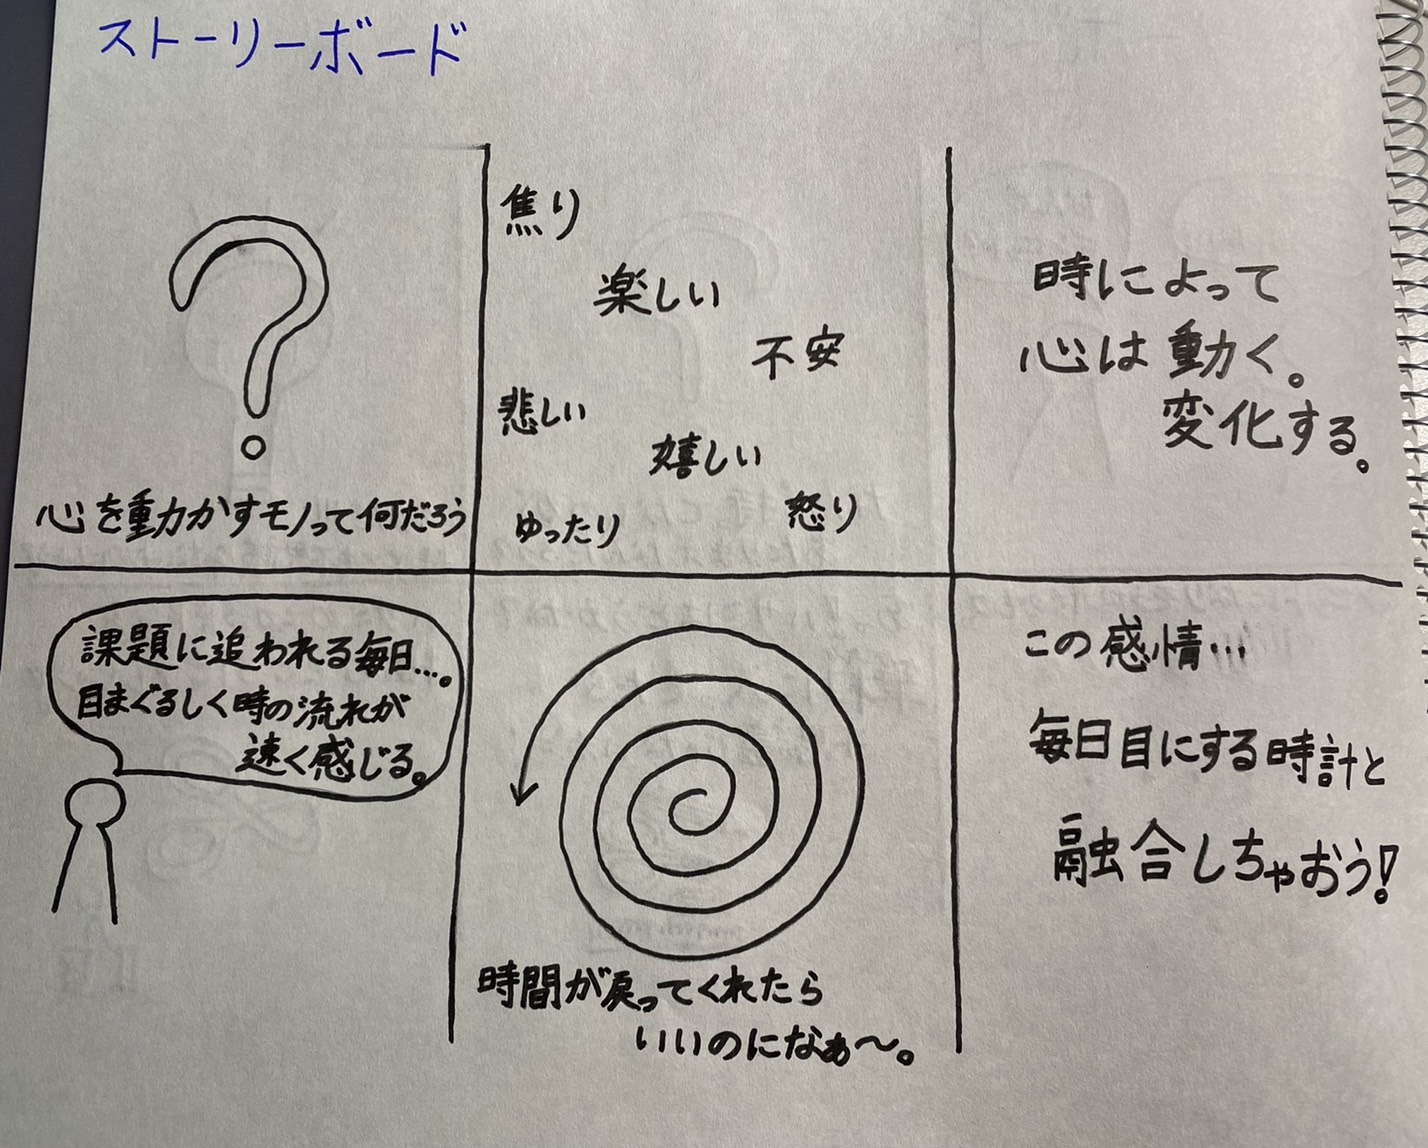 ストーリーボード
心を動かすモノって何だろう
焦り
楽しい
不安
悲しい
嬉しい
ゆったり
怒り
時によって
心は動く。
変化する。
課題に追われる毎日…。
目まぐるしく時の流れが
速く感じる。
時間が戻ってくれたら
いいのになぁ〜。
この感情…
毎日目にする時計と
融合しちゃおう!